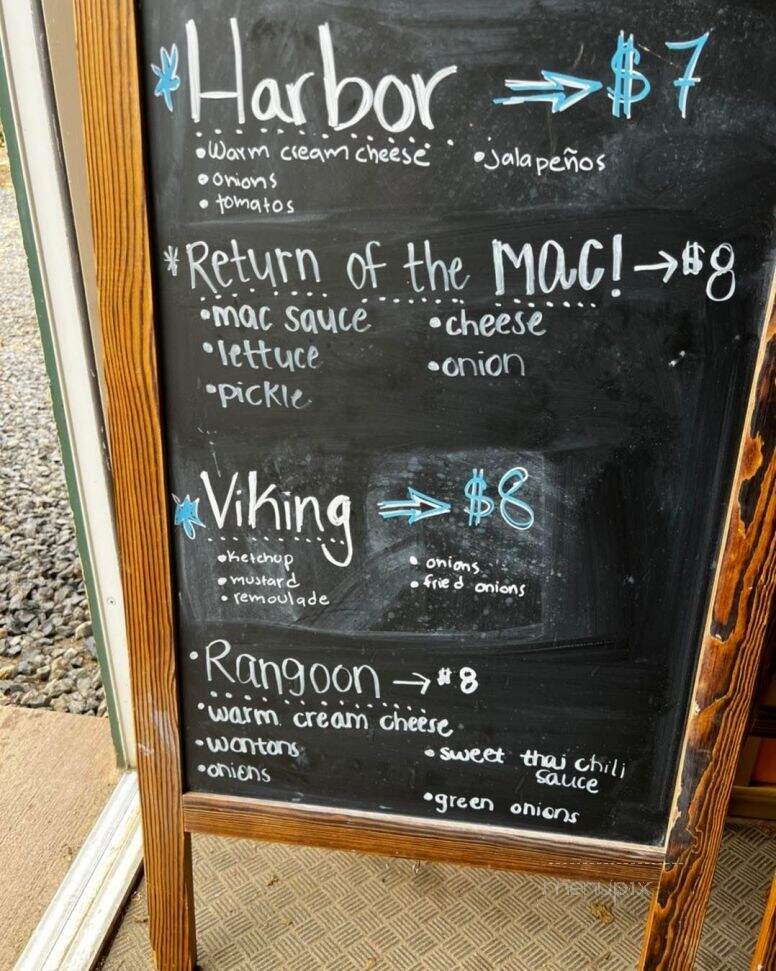 *Harbor → $7
• Warm cream cheese • jalapeños
• onions
• tomatos
*Return of the MAC! → $8
• mac sauce • cheese
• lettuce • onion
• pickle
*Viking → $8
• Ketchup • onions
• mustard • fried onions
• remoulade
• Rangoon → $8
• warm cream cheese
• wontons • sweet thai chili
sauce
• onions
• green onions
menupix